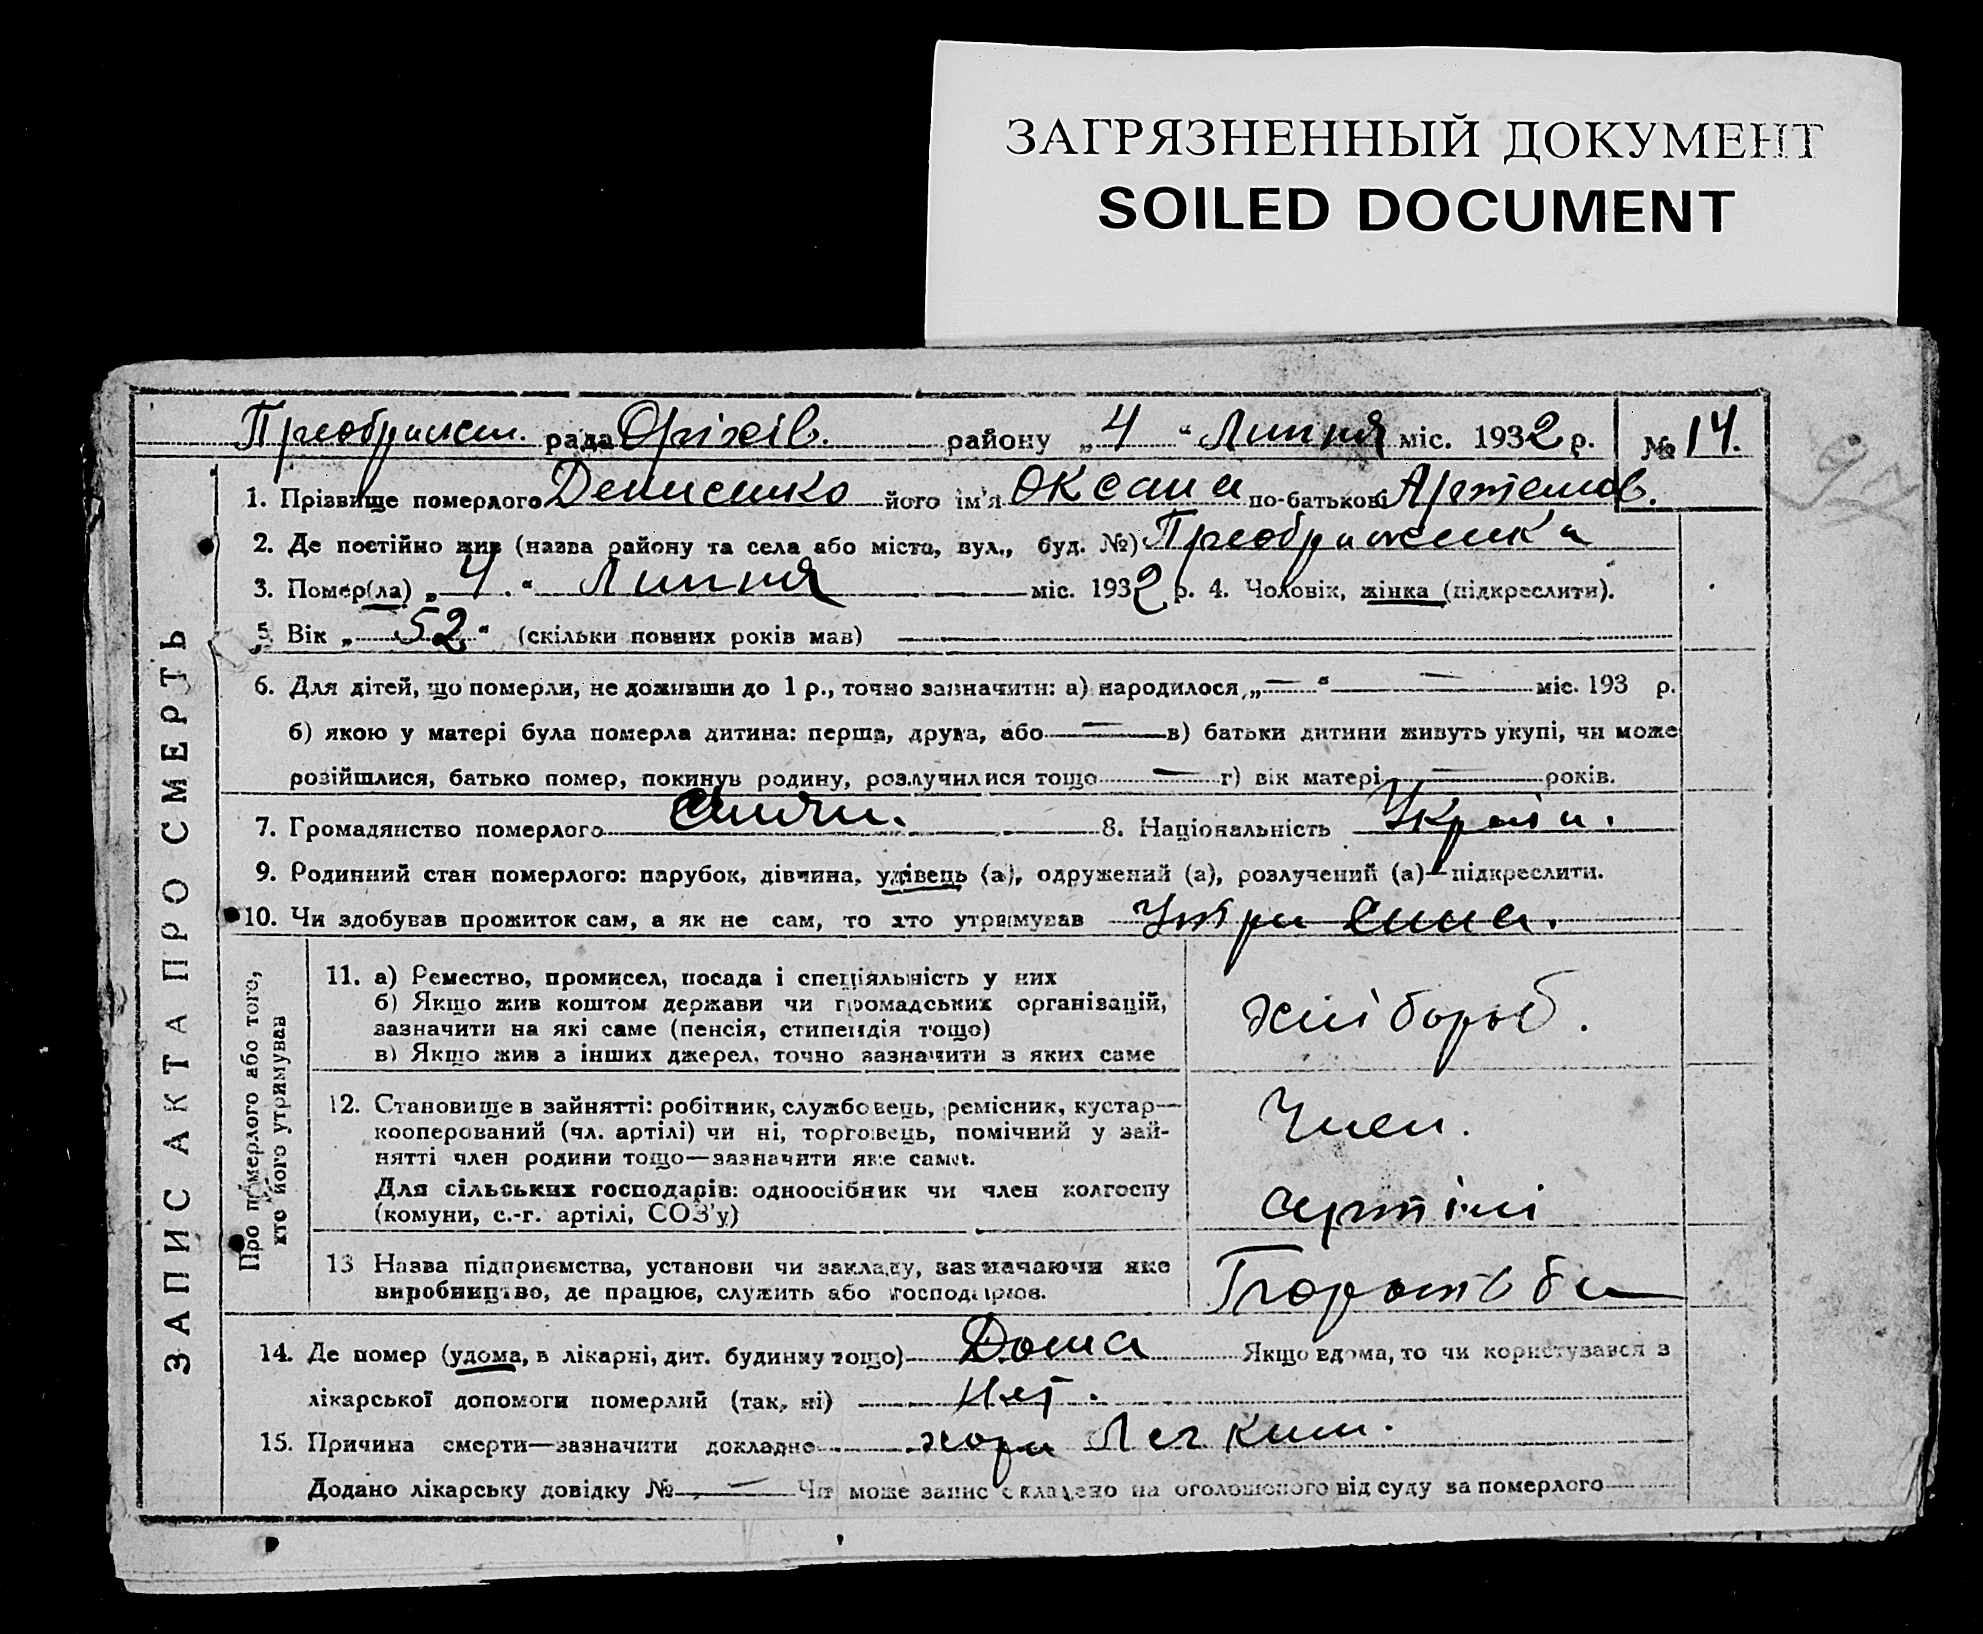 ЗАГРЯЗНЕННЫЙ ДОКУМЕНТ
SOILED DOCUMENT
ЗАПИС АКТА ПРО СМЕРТЬ
рада Оріхів. району „4" Липня міс. 1932 р. № 14.
1. Прізвище померлого Денисенко його ім'я Оксана по-батькові Артемов.
2. Де постійно жив (назва району та села або міста, вул., буд. №) Преображенка
3. Помер(ла) „4." Липня міс. 1932 р. 4. Чоловік, жінка (підкреслити).
5 Вік „52" (скільки повних років мав)
6. Для дітей, що померли, не доживши до 1 р., точно зазначити: а) народилося „—" — міс. 193 р.
б) якою у матері була померла дитина: перша, друга, або — в) батьки дитини живуть укупі, чи може
розійшлися, батько помер, покинув родину, розлучилися тощо — г) вік матері — років.
7. Громадянство померлого 8. Національність Україн.
9. Родинний стан померлого: парубок, дівчина, удівець (а), одружений (а), розлучений (а)—підкреслити.
10. Чи здобував прожиток сам, а як не сам, то хто утримував
Про померлого або того,
хто його утримував
11. а) Ремество, промисел, посада і спеціяльність у них
б) Якщо жив коштом держави чи громадських організацій,
зазначити на які саме (пенсія, стипендія тощо)
в) Якщо жив з інших джерел, точно зазначити з яких саме
хлібороб.
12. Становище в зайнятті: робітник, службовець, ремісник, кустар—
кооперований (чл. артілі) чи ні, торговець, помічний у зай-
нятті член родини тощо—зазначити яке саме.
Для сільських господарів: одноосібник чи член колгоспу
(комуни, с.-г. артілі, СОЗ'у)
Член.
артілі
13 Назва підприємства, установи чи закладу, зазначаючи яке
виробництво, де працює, служить або господарює.
14. Де помер (удома, в лікарні, дит. будинку тощо) Дома Якщо вдома, то чи користувався з
лікарської допомоги померлий (так, ні) Нет.
15. Причина смерти—зазначити докладно Легким.
Додано лікарську довідку № — Чи може запис складено на оголошеного від суду за померлого